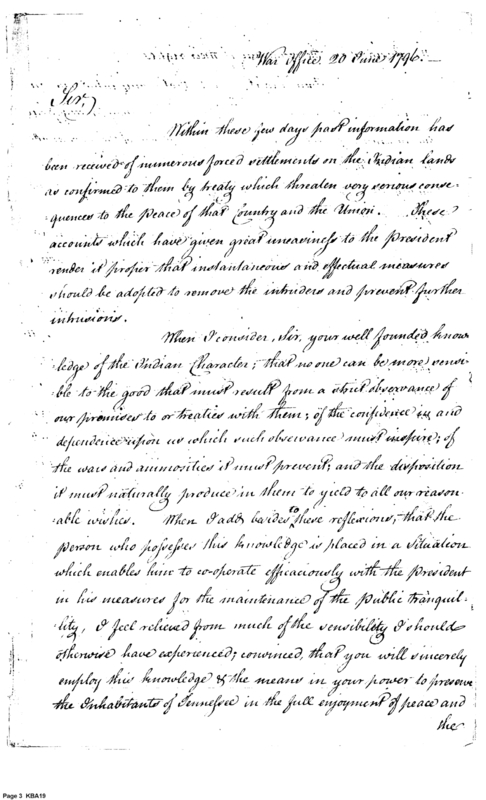 War Office 20 June 1796.
Sir,
Within these few days past information has
been received of numerous forced settlements on the Indian lands
as confirmed to them by treaty which threaten very serious conse-
quences to the peace of that Country and the Union. These
accounts which have given great uneasiness to the President
render it proper that instantaneous and effectual measures
should be adopted to remove the intruders and prevent further
intrusions.
When I consider, Sir, your well founded know-
ledge of the Indian Character; that no one can be more sensi-
ble to the good that must result from a strict observance of
our promises to or treaties with them; of the confidence in and
dependence upon us which such observance must inspire; of
the wars and animosities it must prevent; and the disposition
it must naturally produce in them to yield to all our reason-
able wishes. When I add, besides to these reflexions, that the
person who possesses this knowledge is placed in a situation
which enables him to co-operate efficaciously with the President
in his measures for the maintenance of the public tranquil-
lity, I feel relieved from much of the sensibility I should
otherwise have experienced; convinced, that you will sincerely
employ this knowledge & the means in your power to preserve
the Inhabitants of Tennessee in the full enjoyment of peace and
the
Page 3 KBA19